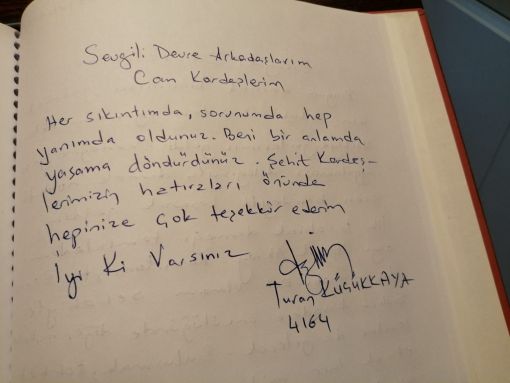 Sevgili Devre Arkadaşlarım
Can Kardeşlerim
Her sıkıntımda, sorunumda hep
yanımda oldunuz. Beni bir anlamda
yaşama döndürdünüz. Şehit Kardeş-
lerimizin hatıraları önünde
hepinize çok teşekkür ederim
İyi Ki Varsınız
Turan KÜÇÜKKAYA
4164